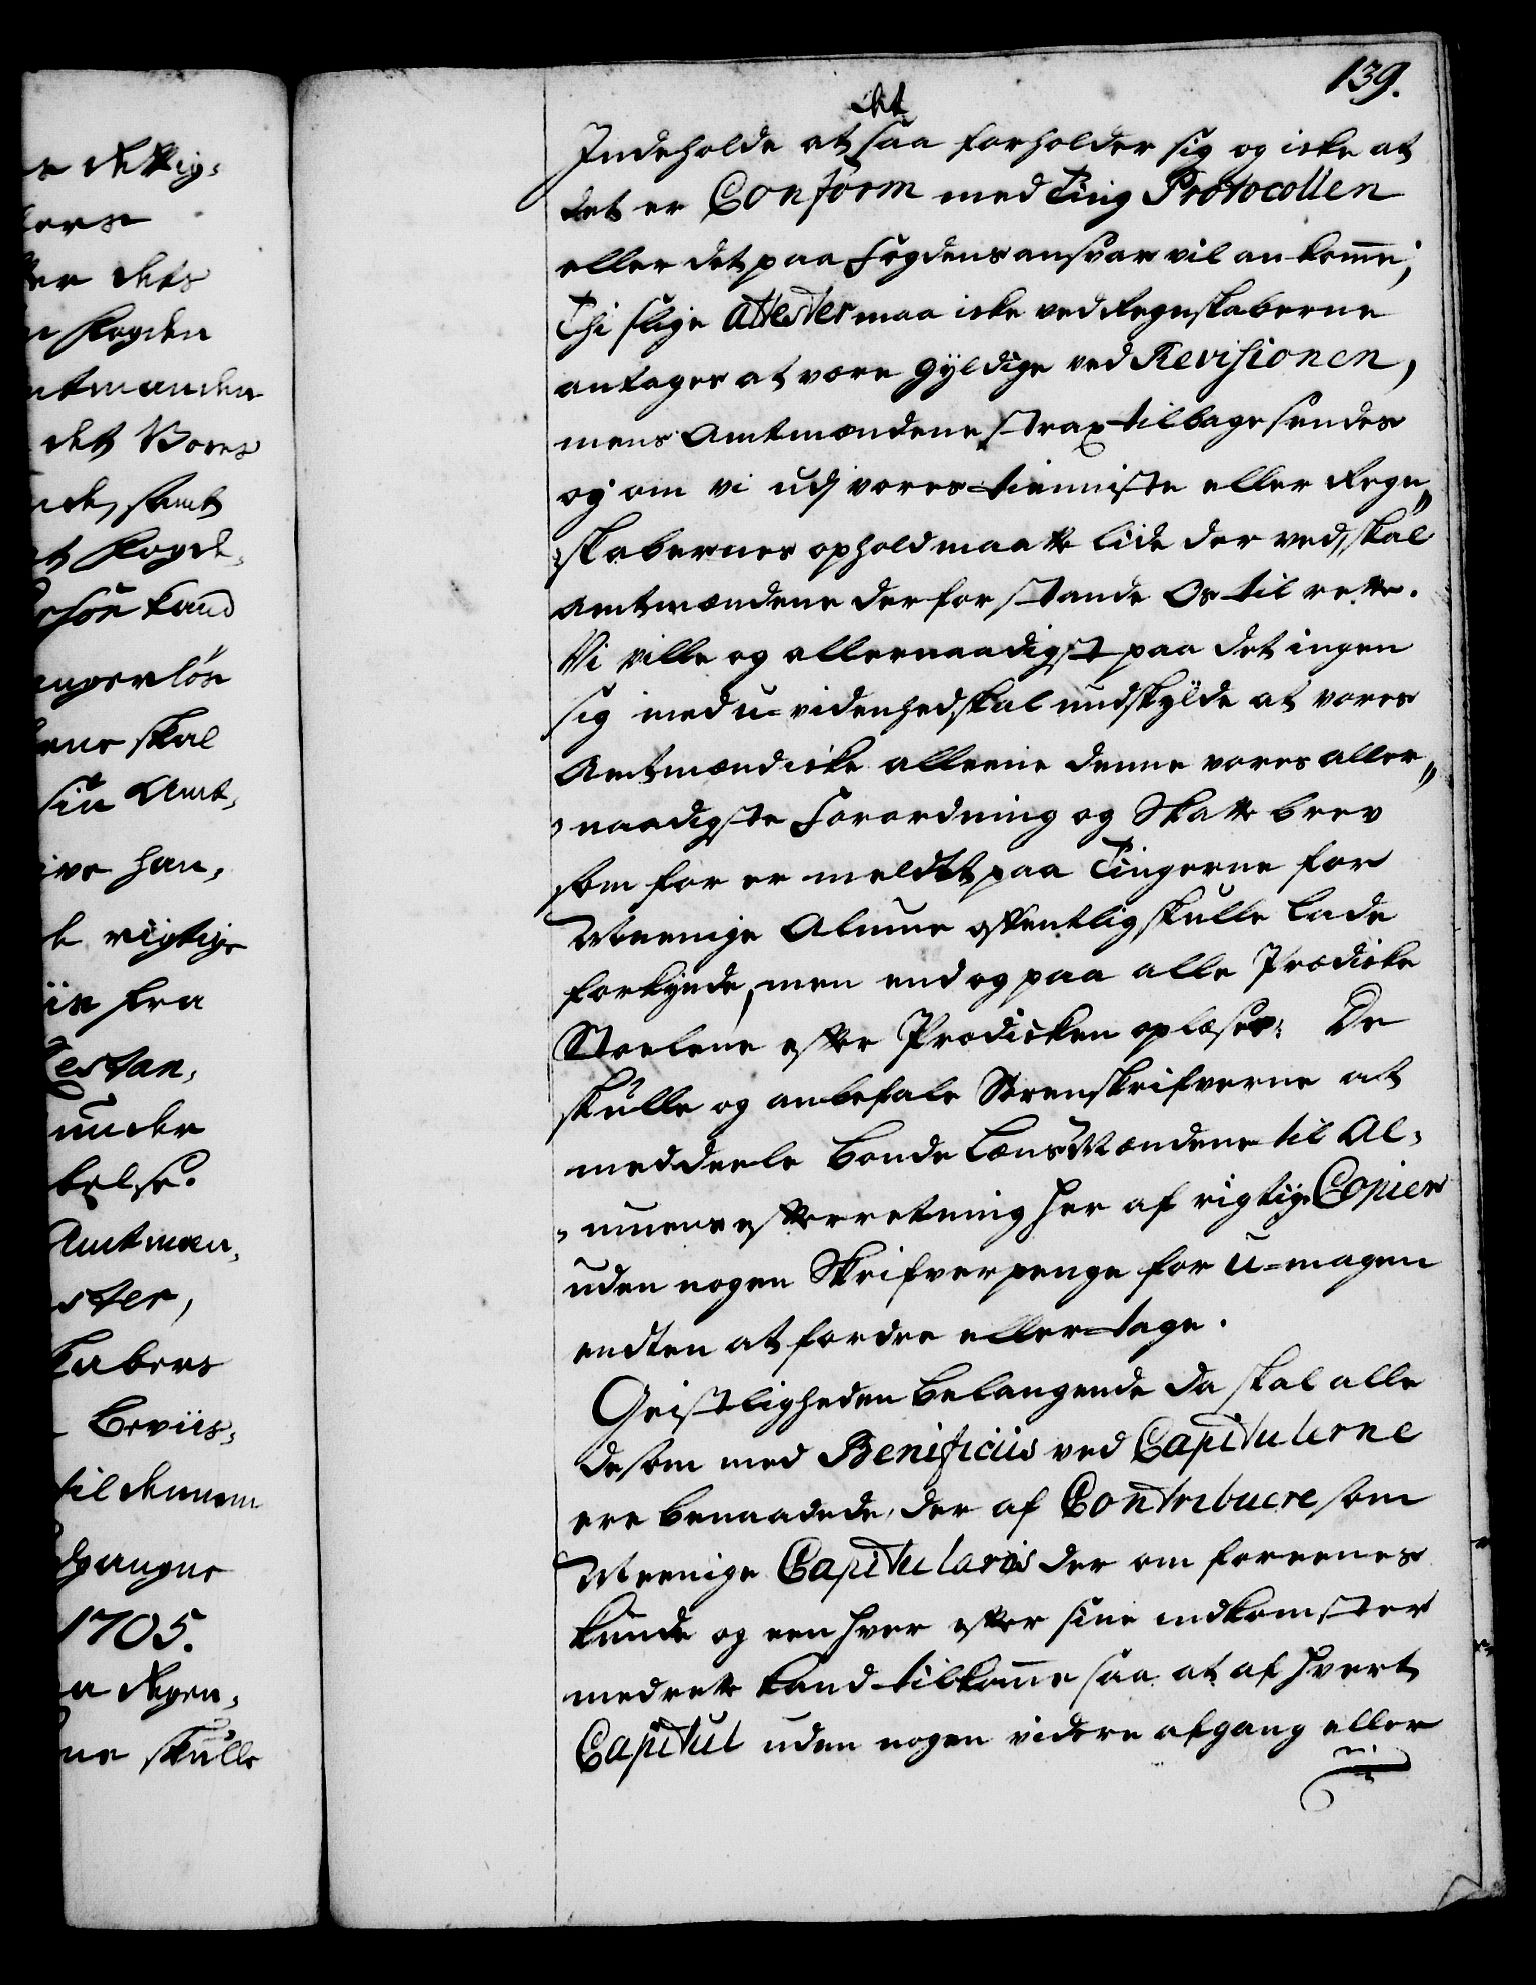 139.
det
Indeholde at saa forholder sig og icke at
det er Conform med Ting Protocollen
eller det paa Fogdens ansvar vil ankomme,
Thi slige Attester maa icke ved Regnskaberne
antages at være gyldige ved Revisionen,
mens Amtmændene strax tilbage sendes
og om vi udj vores tienniste eller Regn„
„skabernes ophold maatte lide der ved, skal
Amtmændene derfor stande Os til rette.
Vi ville og allernaadigst paa det ingen
sig med u-videnhed skal undskylde at vores
Amtmænd icke alleene denne vores aller„
„naadigste Forordning og Skatte brev
som for er meldt paa Tingerne for
Meenige Almue offentlig skulle lade
forkynde, men end og paa alle Prædicke
Stoelene efter Prædicken oplæses: De
skulle og anbefale Sorenskrifverne at
meddeele Bonde Lænsmændene til Al-
-muens efterretning her af rigtige Copier
uden nogen Skrifverpenge for U-magen
endten at fordre eller tage.
Geistligheden belangende da skal alle
de som med Benificiis ved Capitulerne
ere benaadede, der af Contribuere som
Meenige Capitularis der om foreenes
kunde og een hver efter sine indkomster
med rette kand tilkomme saa at af hvert
Capitul uden nogen videre afgang eller
Fogden
Amtmanden
det Vores
samt
kand
skal
sin Amt-
rigtige
fra
under
Amtmæn-
Beviis-
til dennem
1705.
skulle